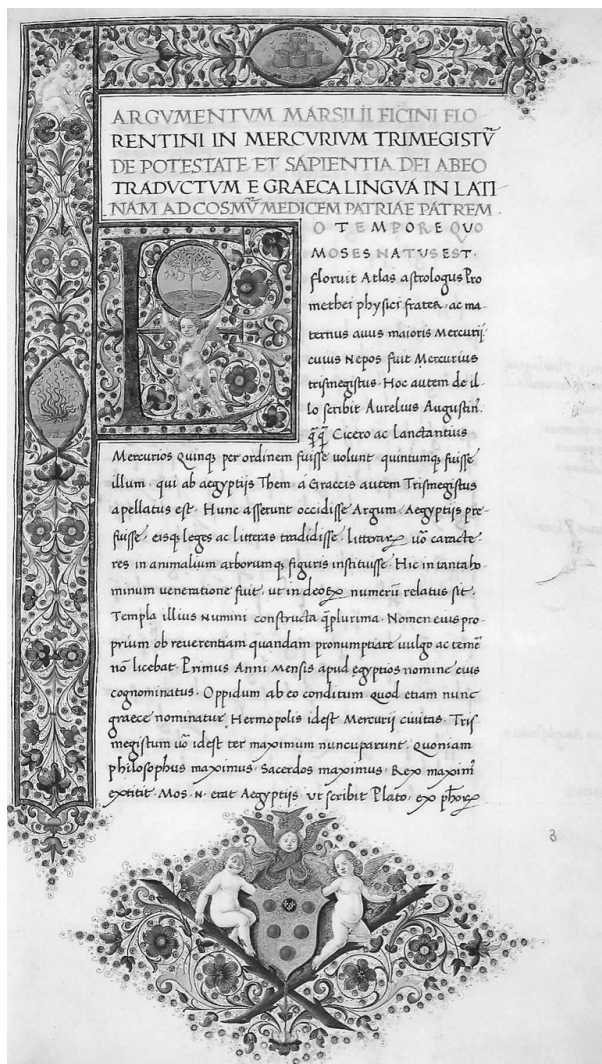 ARGVMENTVM MARSILII FICINI FLO
RENTINI IN MERCVRIVM TRIMEGISTV̄
DE POTESTATE ET SAPIENTIA DEI AB EO
TRADVCTVM E GRAECA LINGVA IN LATI
NAM AD COSMV̄ MEDICEM PATRIAE PATREM
E O TEMPORE QVO
MOSES NATVS EST.
floruit Atlas astrologus Pro
methei physici frater. ac ma
ternus auus maioris Mercurij
cuius Nepos fuit Mercurius
trismegistus. Hoc autem de il
lo scribit Aurelius Augustin⁹.
q̄q̄ Cicero ac Lanctantius
Mercurios Quinqꝫ per ordinem fuisse uolunt quintumqꝫ fuisse
illum. qui ab aegyptijs Them. a Graecis autem Trismegistus
apellatus est. Hunc asserunt occidisse Argum. Aegyptijs pre
fuisse. eisqꝫ leges ac litteras tradidisse. litterarꝝ uō caracte
res in animalium arborumqꝫ figuris instituisse. Hic in tanta ho
minum ueneratione fuit. ut in deorꝝ numerū relatus sit.
Templa illius Numini constructa q̄plurima. Nomen eius pro
prium ob reuerentiam quandam pronumptiare uulgo ac temē
nō licebat. Primus Anni Mensis apud egyptios nomine eius
cognominatus. Oppidum ab eo conditum quod etiam nunc
graece nominatur Hermopolis idest Mercurij ciuitas. Tris
megistum uō idest ter maximum nuncuparunt. Quoniam
philosophus maximus. Sacerdos maximus. Rex maxim⁹
extitit. Mos. N. erat Aegyptijs. ut scribit Plato. ex ph̄orꝝ
8